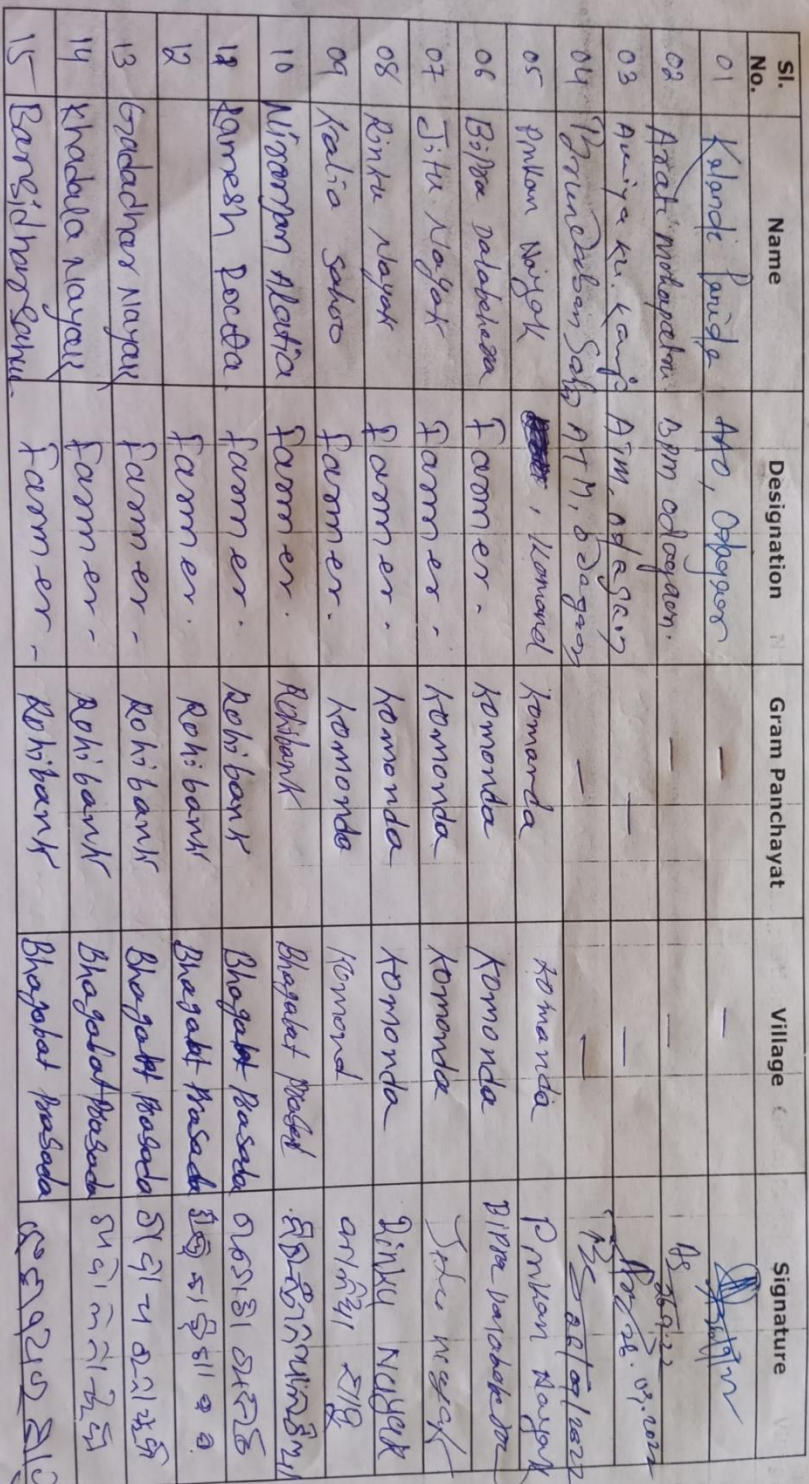 Sl. No. Name Designation Gram Panchayat Village Signature
01 Kalandi Parida AAO, Odagaon — —
02 Arati Mohapatra BPM Odagaon. — —
03 Amiya Ku. ATM, Odagaon — — 26.09.2022
04 Brundaban Sahu ATM, Odagaon — — 26/09/2022
05 Pinkan Nayak , Komand Komanda Komanda Pinkan Nayak
06 Bipra Dalabehera Farmer. Komonda Komonda Bipra Dalabehera
07 Jitu Nayak Farmer. Komonda Komonda Jitu Nayak
08 Rinku Nayak Farmer. Komonda Komonda Rinku Nayak
09 Kalia Sahoo Farmer. Komonda Komond କାଳିଆ ସାହୁ
10 Niranjan Farmer. Rohibank Bhagabat Prasad
12 Ramesh Farmer. Rohibank Bhagabat Prasada
12 Farmer. Rohibank Bhagabat Prasada
13 Gadadhar Nayak Farmer- Rohibank Bhagabat Prasada ଗଦାଧର ନାୟକ
14 Khadala Nayak Farmer- Rohibank Bhagabat Prasada
15 Bansidhar Sahu Farmer- Rohibank Bhagabat Prasada